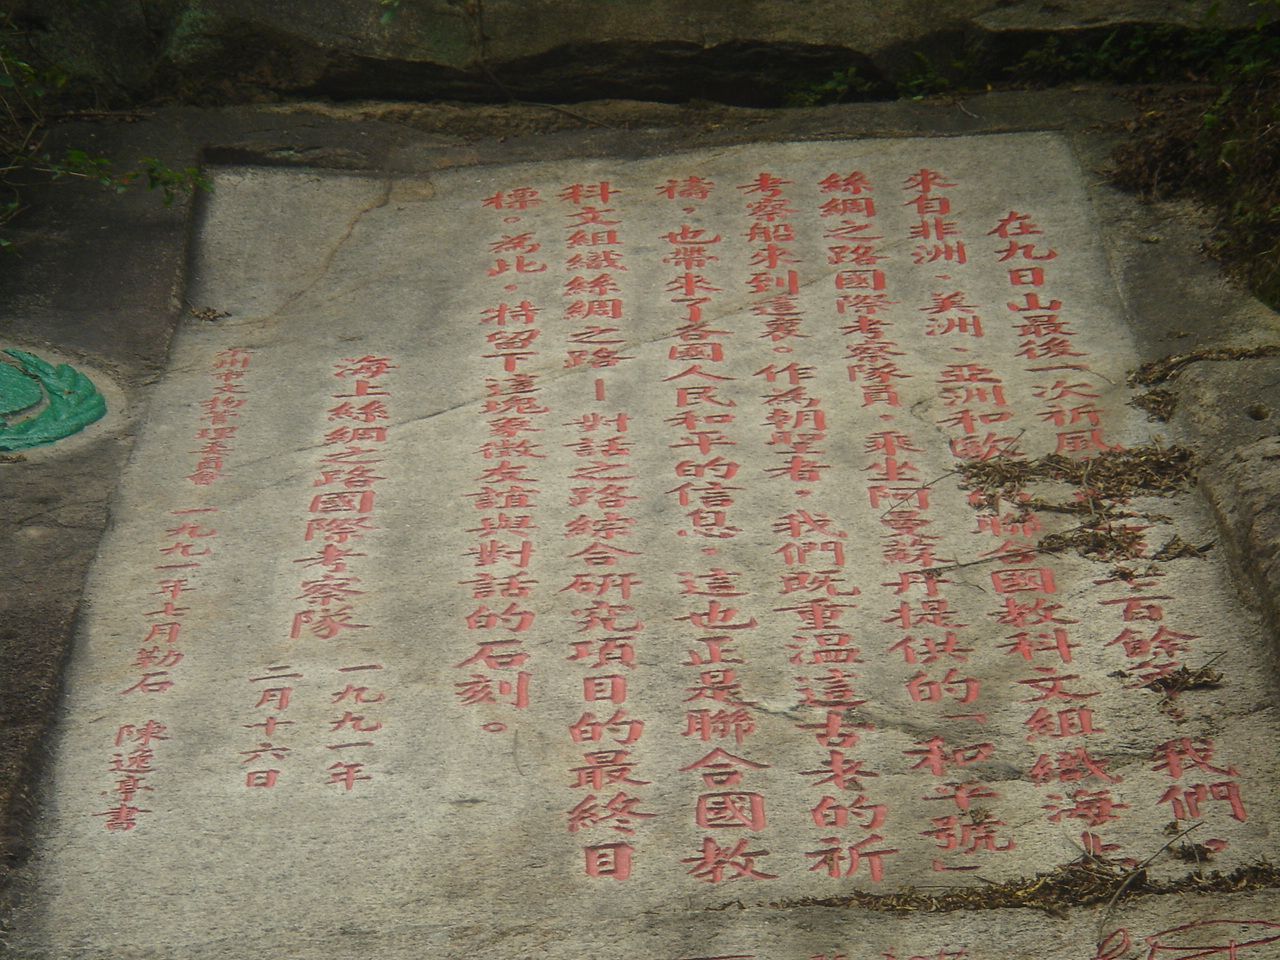 在九日山最後一次祈風 七百餘年,我們、
來自非洲、美洲、亞洲和歐 聯合國教科文組織海上
絲綢之路國際考察隊員,乘坐阿曼蘇丹提供的「和平號」
考察船來到這裏。作為朝聖者,我們既重溫這古老的祈
禱,也帶來了各國人民和平的信息,這也正是聯合國教
科文組織絲綢之路—對話之路綜合研究項目的最終目
標。為此,特留下這塊象徵友誼與對話的石刻。
海上絲綢之路國際考察隊
一九九一年
二月十六日
州市文物管理委員會 一九九一年七月勒石 陳逸亭書